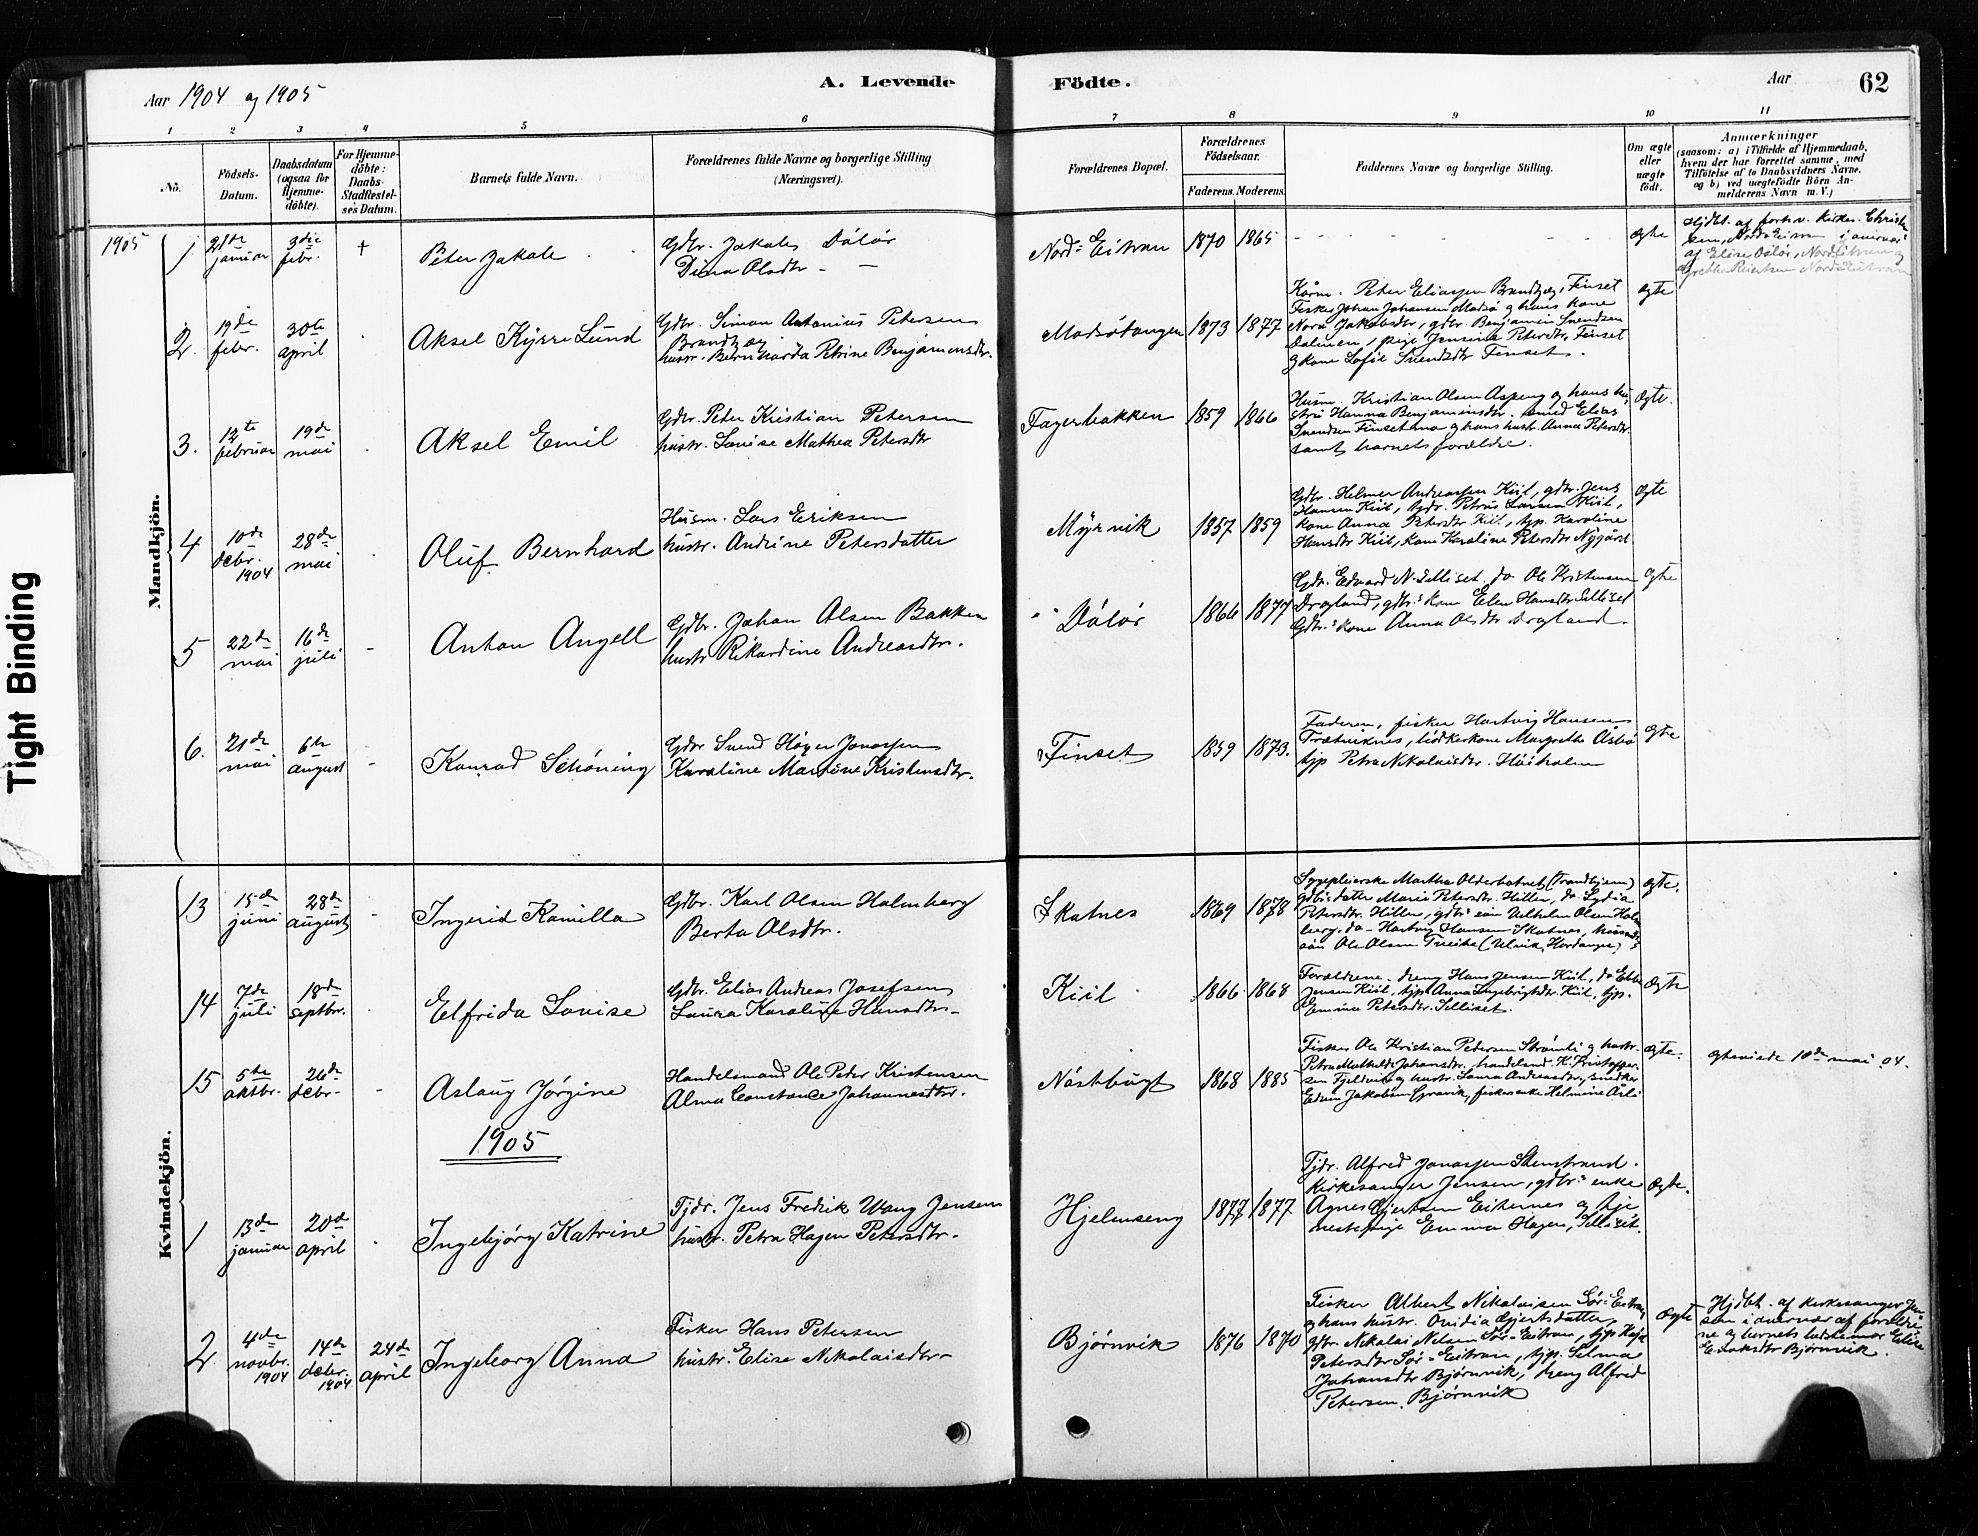 Aar 1904 og 1905
A. Levende
Födte.
Aar
62
1 2 3 4 5 6 7 8 9 10 11
No.
Födsels-
Datum.
Daabsdatum
(ogsaa for
Hjemme-
döbte).
For Hjemme-
döbte:
Daabs-
Stadfæstel-
ses Datum.
Barnets fulde Navn.
Forældrenes fulde Navne og borgerlige Stilling
(Næringsvei).
Forældrenes Bopæl.
Forældrenes
Födselsaar.
Faderens. Moderens.
Faddernes Navne og borgerlige Stilling.
Om ægte
eller
uægte
födt.
Anmærkninger
(saasom: a) i Tilfælde af Hjemmedaab,
hvem der har forrettet samme, med
Tilföielse af to Daabsvidners Navne,
og b) ved uægtefödte Börn An-
melderens Navn m. V.)
Tight Binding
Mandkjön.
1905
1 21de januar 3die febr. †
Peter Jakob
Gdbr. Jakob Dålør
Dina Olsdtr.
Nord-Eitran 1870 1865
ægte
2 19de febr. 30te april
Aksel Kyrre Lund
Gdbr. Simon Antonius Petersen
Brandtzæg
hustr. Bernharda Petrine Benjaminsdtr.
Madsøtangen 1873 1877
Kårm. Peter Eliassen Brandtzæg, Finset
Fisker Johan Johansen Madsø og hans kone
Nora Jakobsdtr, gdbr. Benjamin Svendsen
Dalmen, pige Jensina Petersdtr Finset
og kone Sofie Svendsdtr Finset.
ægte
3. 12te februar 19de mai
Aksel Emil
Gdbr. Peter Kristian Petersen
hustr. Lovise Mathea Petersdtr
Fagerbakken 1859 1866
Husm. Kristian Olsen Aspeng og hans hu-
stru Hanna Benjaminsdtr. smed Elias
Svendsen og hans hustr. Anna Petersdtr.
samt barnets forældre.
ægte.
4 10de debr. 1904 28de mai
Oluf Bernhard
Husm. Lars Eriksen
hustr. Andrine Petersdatter
Myrvik 1857 1859
Gdbr. Helmer Andreassen Kiil, gdbr. Jens
Hansen Kiil, Gdbr. Petrus Larsen Kiil,
Kone Anna Petersdtr Kiil, tjp. Karoline
Hansdtr Kiil, Kone Karoline Petersdtr Nygård
ægte
5 22de mai 16de juli
Anton Angell
Gdbr. Johan Olsen Bakken
hustr Rikardine Andreasdtr.
Dålør 1866 1877
Gdbr. Edvard N. Selliset. do Ole Kristensen
Dragland, gdbr's kone Elen Hansdtr Selliset
Gdbr.'s kone Anna Olsdtr Dragland.
ægte
6. 21de mai 6te august
Konrad Schöning
Gdbr Svend Høyer Jonassen
Karoline Martine Kristensdtr.
Finset 1859 1873.
Faderen, fisker Hartvig Hansen
Trætviknes, bödkerkone Margrethe
tjp Petra Nikolaisdtr. Høiholm
ægte
Kvindekjön.
13 15de juni 28de august
Ingerid Kamilla
Gdbr. Karl Olsen Holmberg
Berta Olsdtr.
Skatnes 1869 1878
Sygepleierske Martha Olderbatnet (Trondhjem)
gdbr's datter Marie Petersdtr. Hiller, do Lydia
Petersdtr. Hiller, gdbr's søn Vilhelm Olsen Holm-
berg. do Hartvig Hansen Skatnes,
Ole Olsen Tveite (Ulvik, Hardanger)
ægte.
14 7de juli 18de septbr.
Elfrida Lovise
Gdbr. Elias Andreas Josefsen
Laura Karoline Hansdtr
Kiil 1866 1868
Forældrene. dreng Hans Jensen Kiil, do
Jensen Kiil. tjp. Anna Ingebrigtsdtr. Kiil, tjp.
Emma Petersdtr. Selliset.
Ægte
15 5te oktbr. 26de debr.
Aslaug Jörgine
Handelsmand Ole Peder Kristensen
Alma Constance Johannesdtr.
Nåstbugt 1868 1885
Fisker Ole Kristian Pedersen Strömli og hustr.
Petra Mathilde Johansdtr. handelsmd. K. Kristoffer-
sen Fjeldvik og hustr. Laura Andreasdtr., snedker
Edvin Jakobsen Gravik, fiskerenke Helmine
ægte.
ægteviede 10de mai 04.
1905
1 13de januar 20de april
Ingebjørg Katrine
Tjdr. Jens Fredrik Wang Jensen
hustr. Petra Hagen Petersdtr.
Hjelmseng 1877 1877
Tjdr. Alfred Jonassen Stenstrand.
Kirkesanger Jensen, gdbr's enke
Agnes Gjertsen Eiternes og tje-
nestepige Emma Hagen, Selliset.
Ægte.
2 4de novbr. 1904 14de debr. 1904 24de april
Ingeborg Anna
Fisker Hans Petersen
hustr. Elise Nikolaisdtr
Bjørnvik 1876 1870
Fisker Albert Nikolaisen Sør-Eitran
og hans hustr. Ovidia Gjertsdatter,
gdbr. Nikolai Nilsen Sør-Eitran, tjp
Petersdtr Sør-Eitran, tjp. Selma
Johansdtr Bjørnvik, dreng Alfred
Petersen. Bjørnvik
Ægte
Hjdbt. af kirkesanger Jen-
sen i overvær af forældre-
ne og barnets bedstemor Elise
E. Bjørnvik.